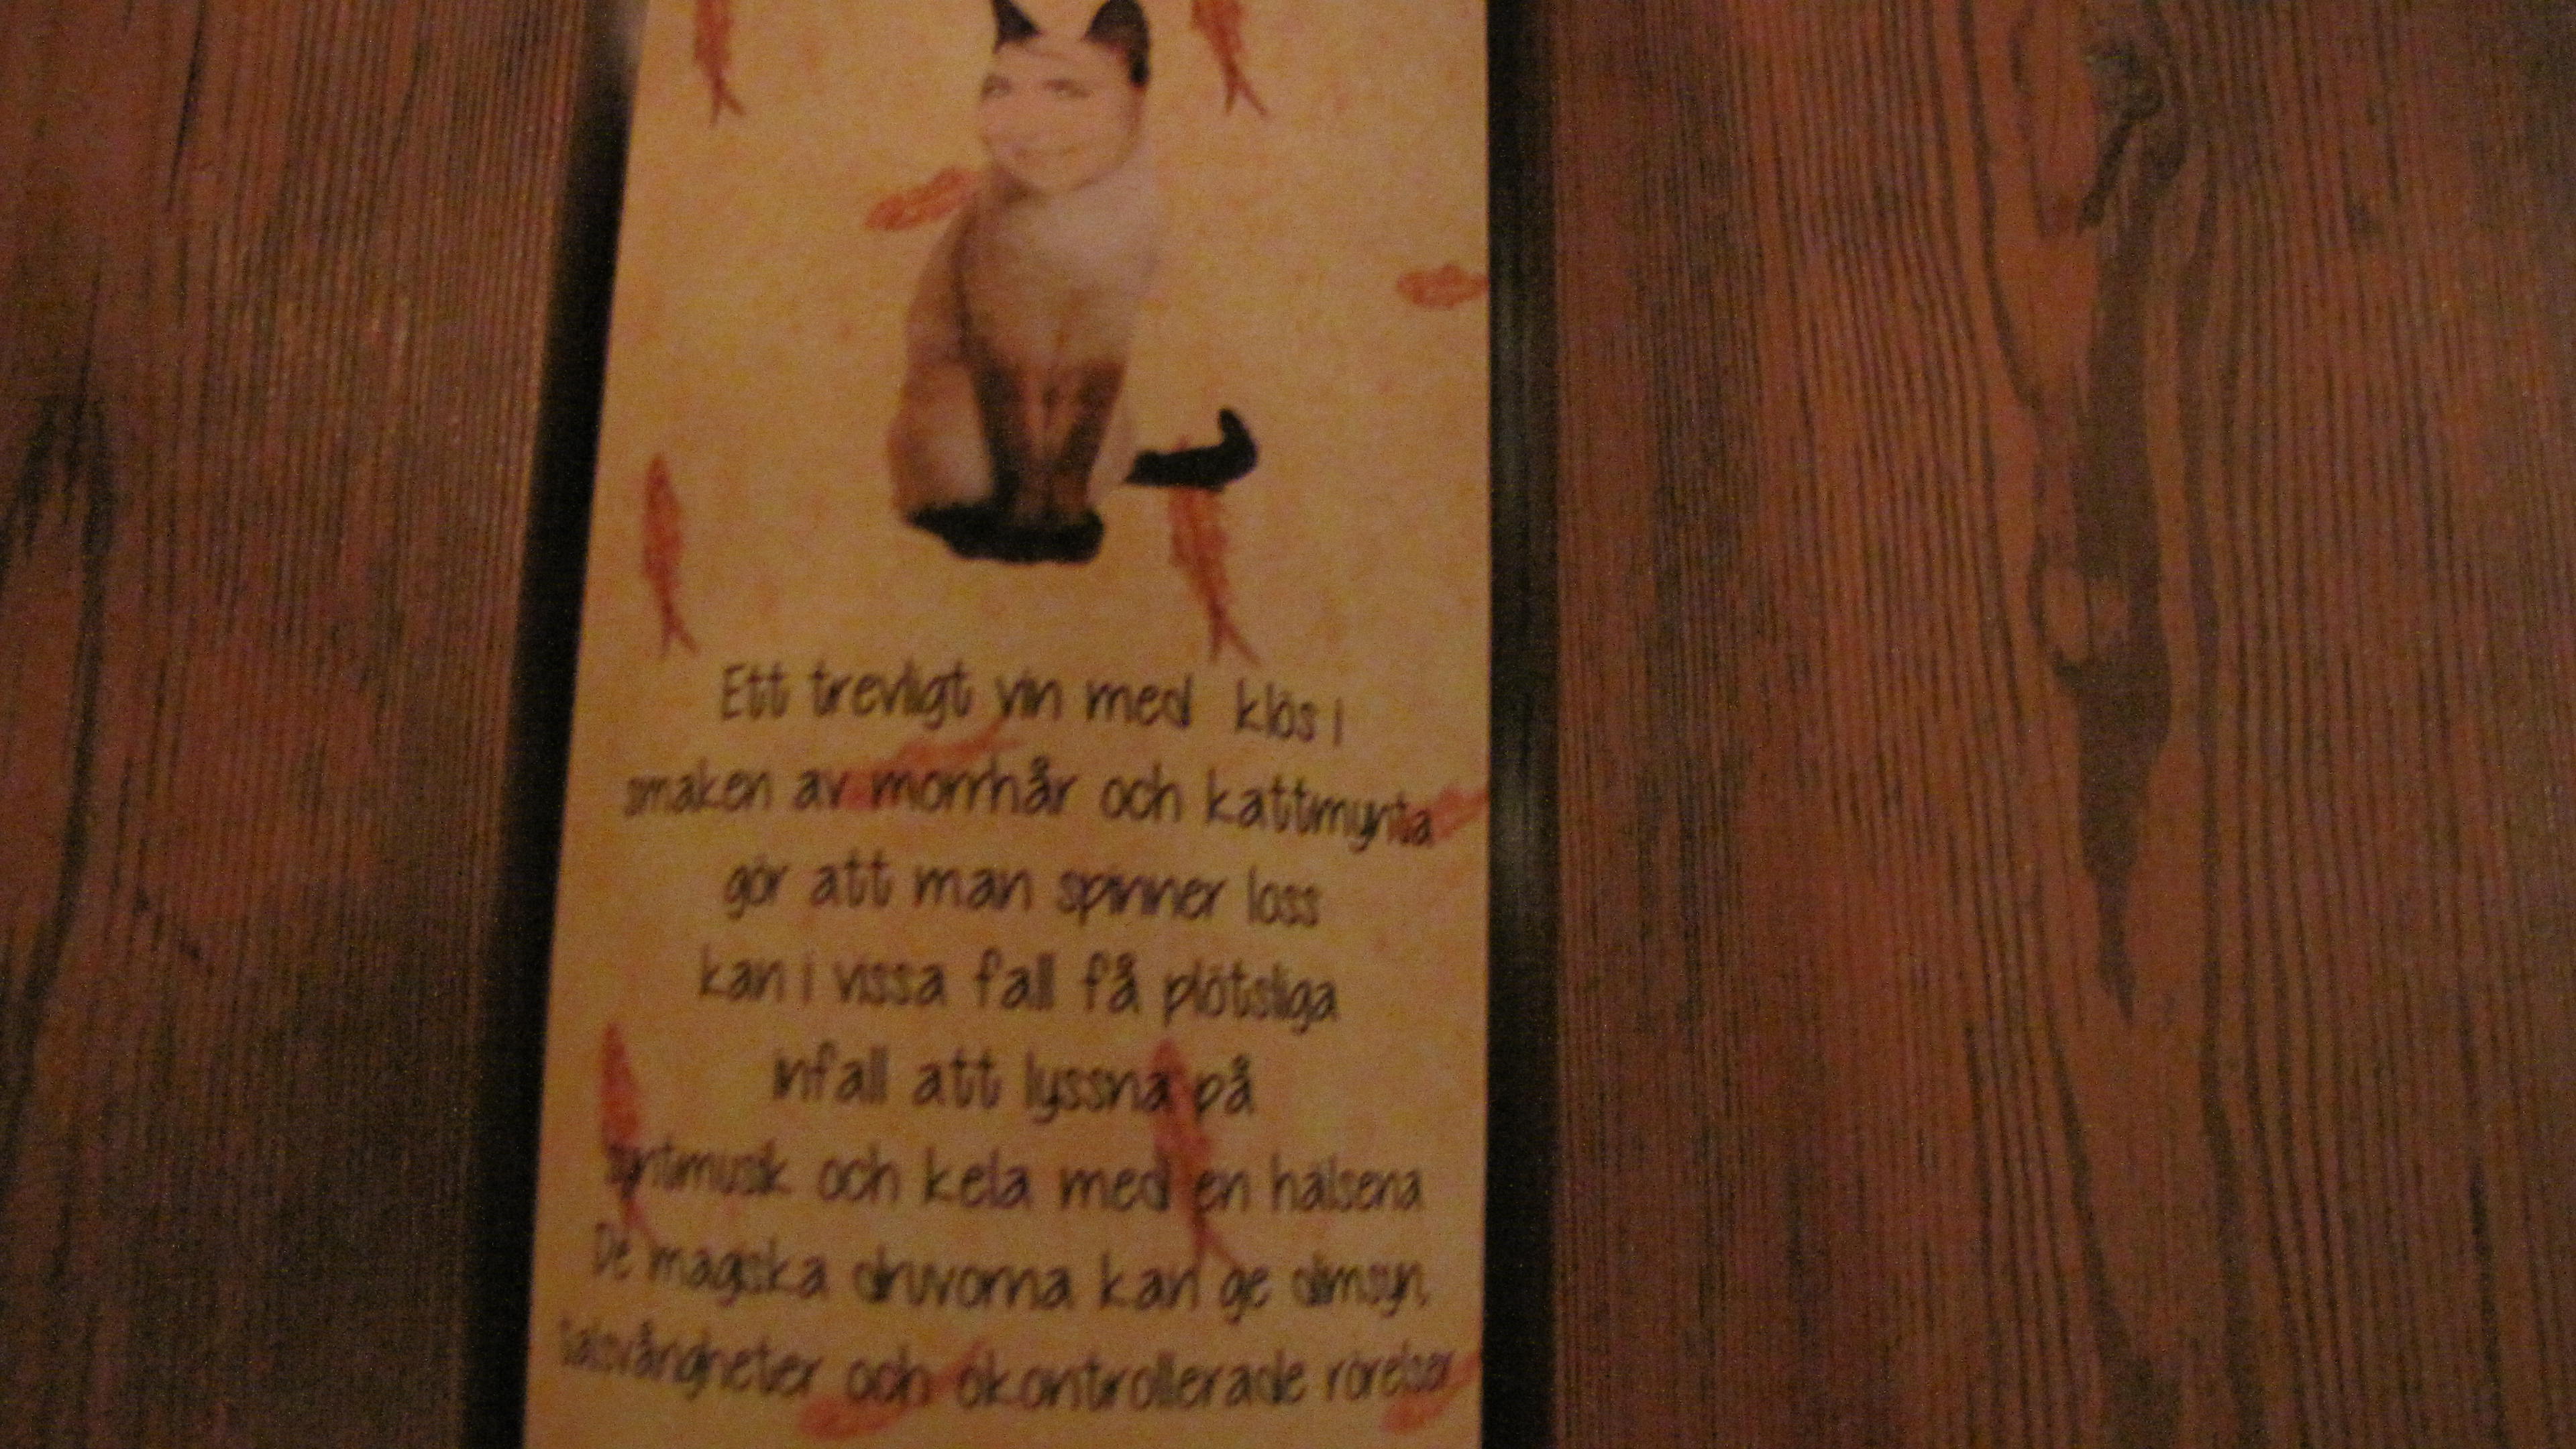 Ett trevligt vin med klös i
smaken av morrhår och kattmynta
gör att man spinner loss
kan i vissa fall få plötsliga
infall att lyssna på
syntmusik och kela med en hälsena
De magiska druvorna kan ge dimsyn,
talsvårigheter och okontrollerade rörelser